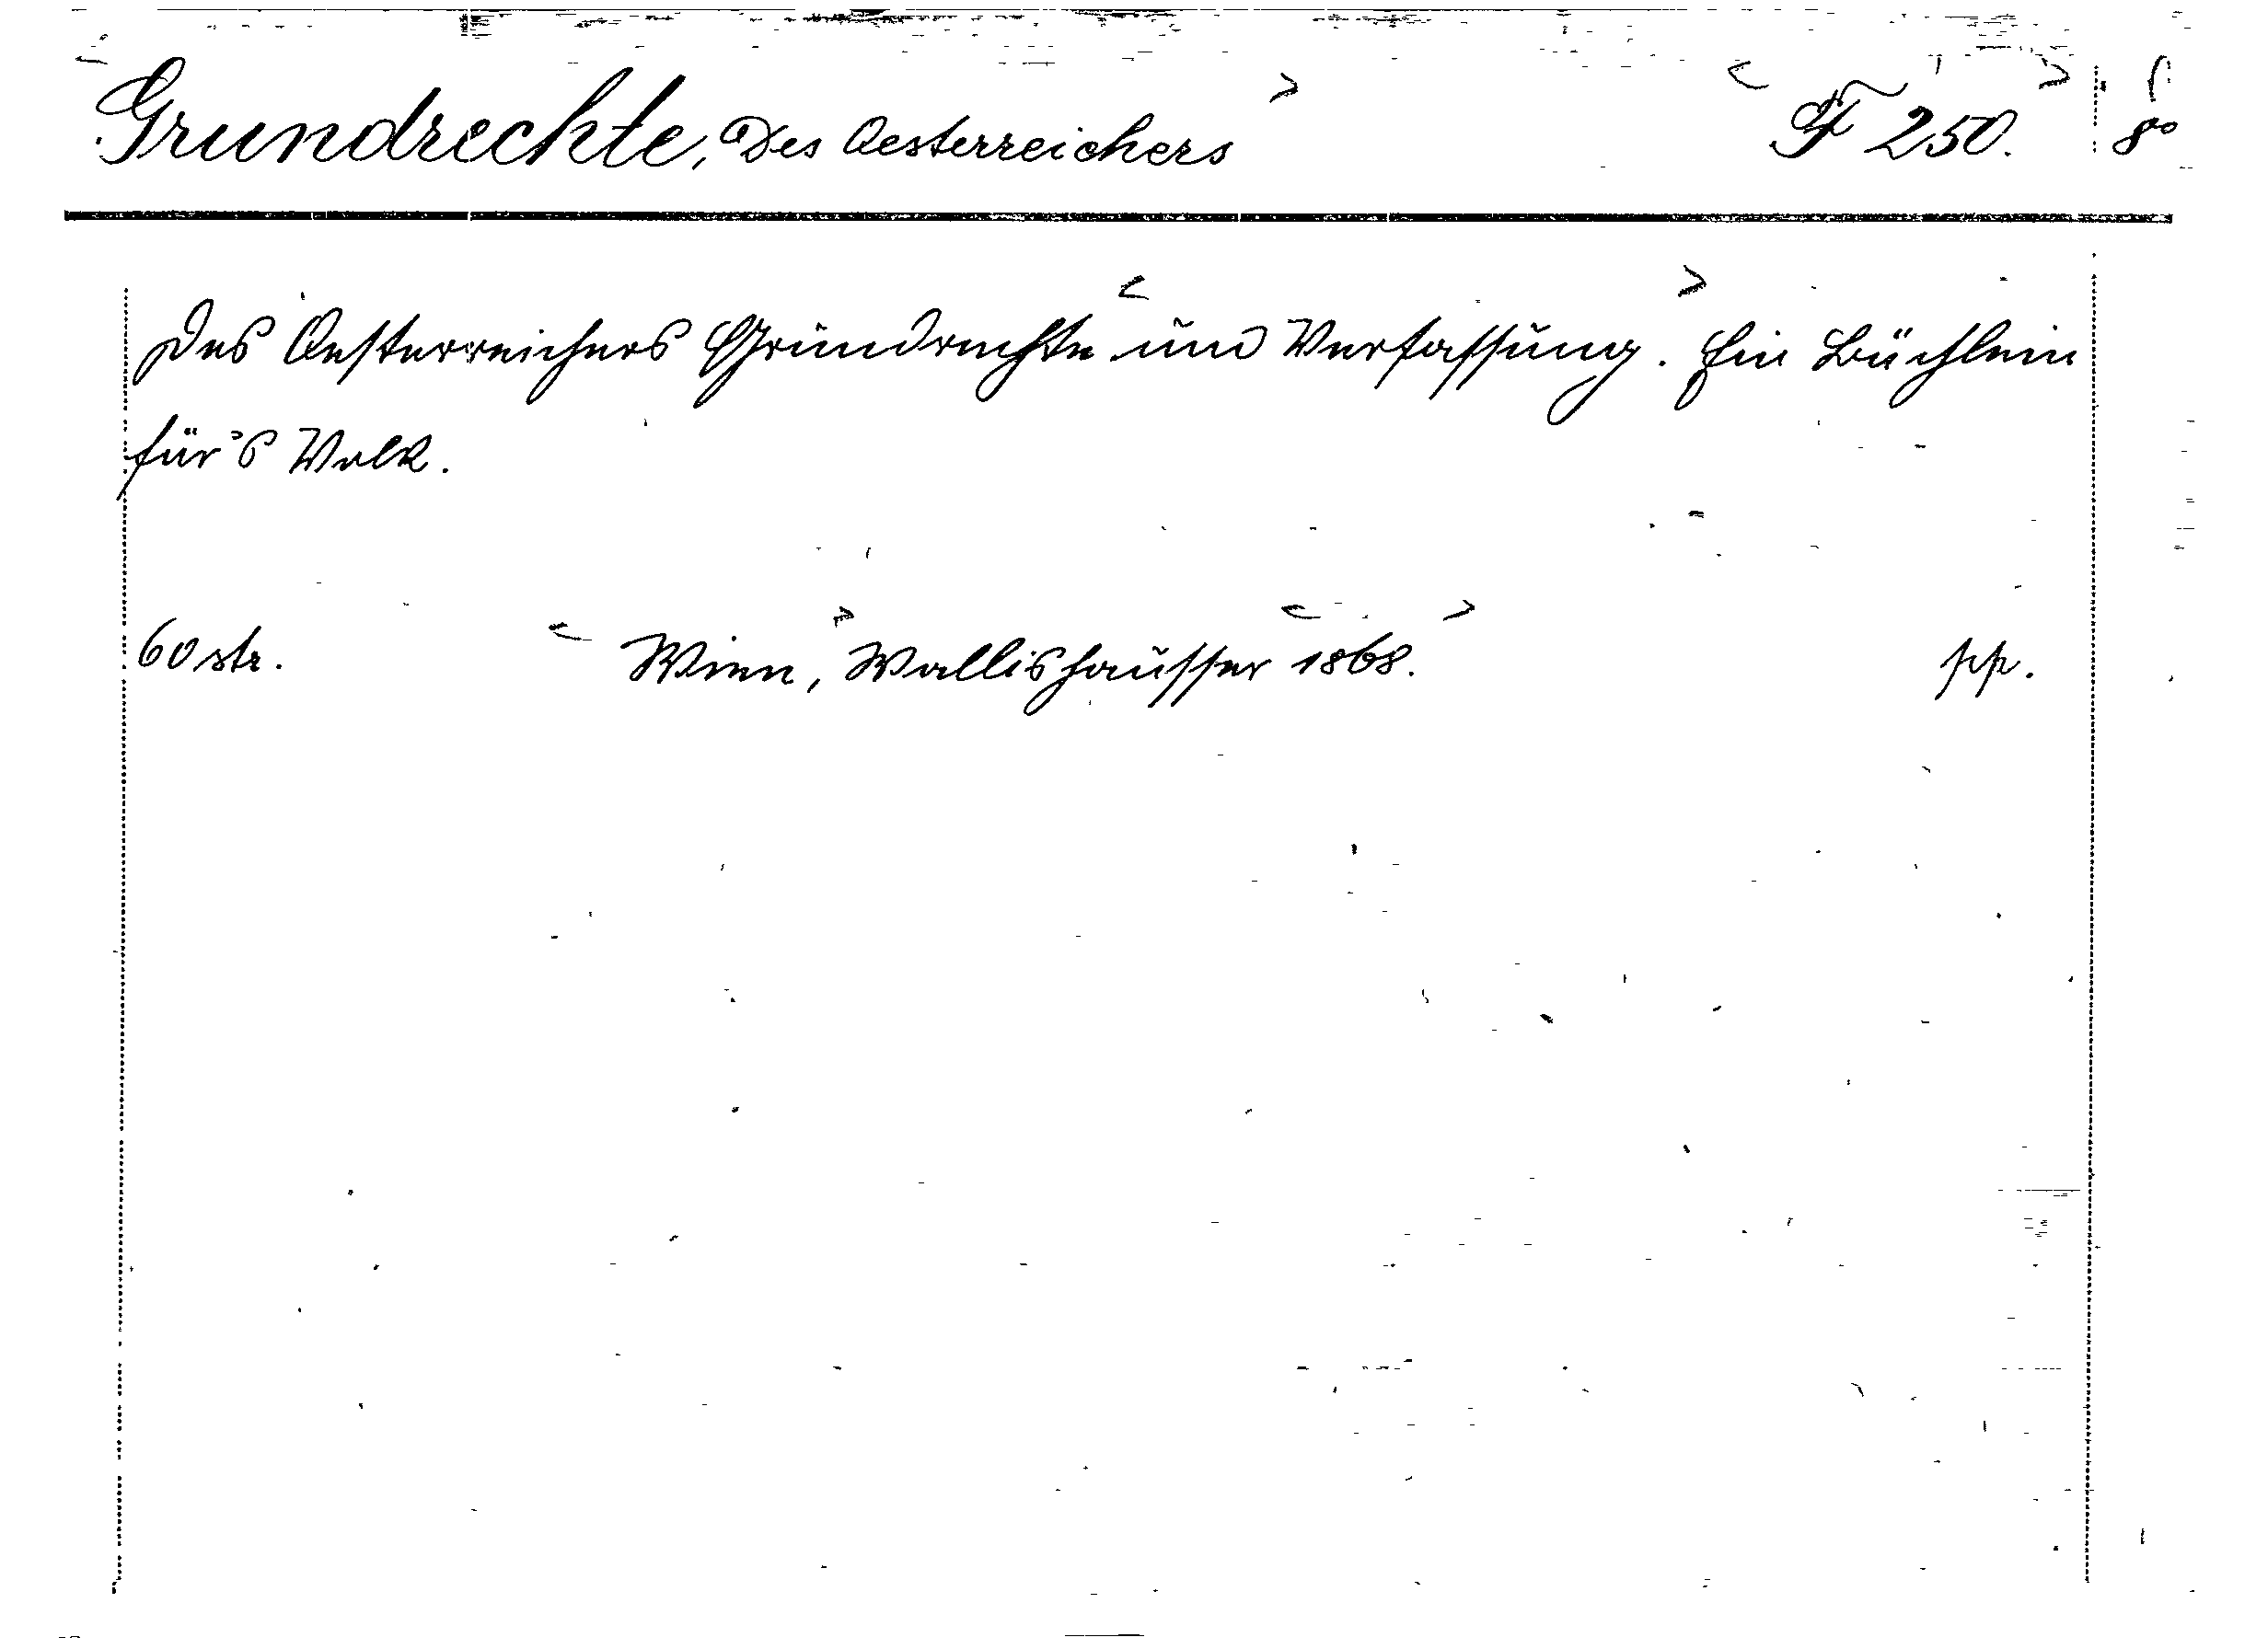 Grundrechte, Des Oesterreichers F 250. 8°
Des Oesterreichers Grundrechte und Verfassung. Ein Büchlein
für's Volk.
60 str. Wien, Wallishausser 1868. pp.